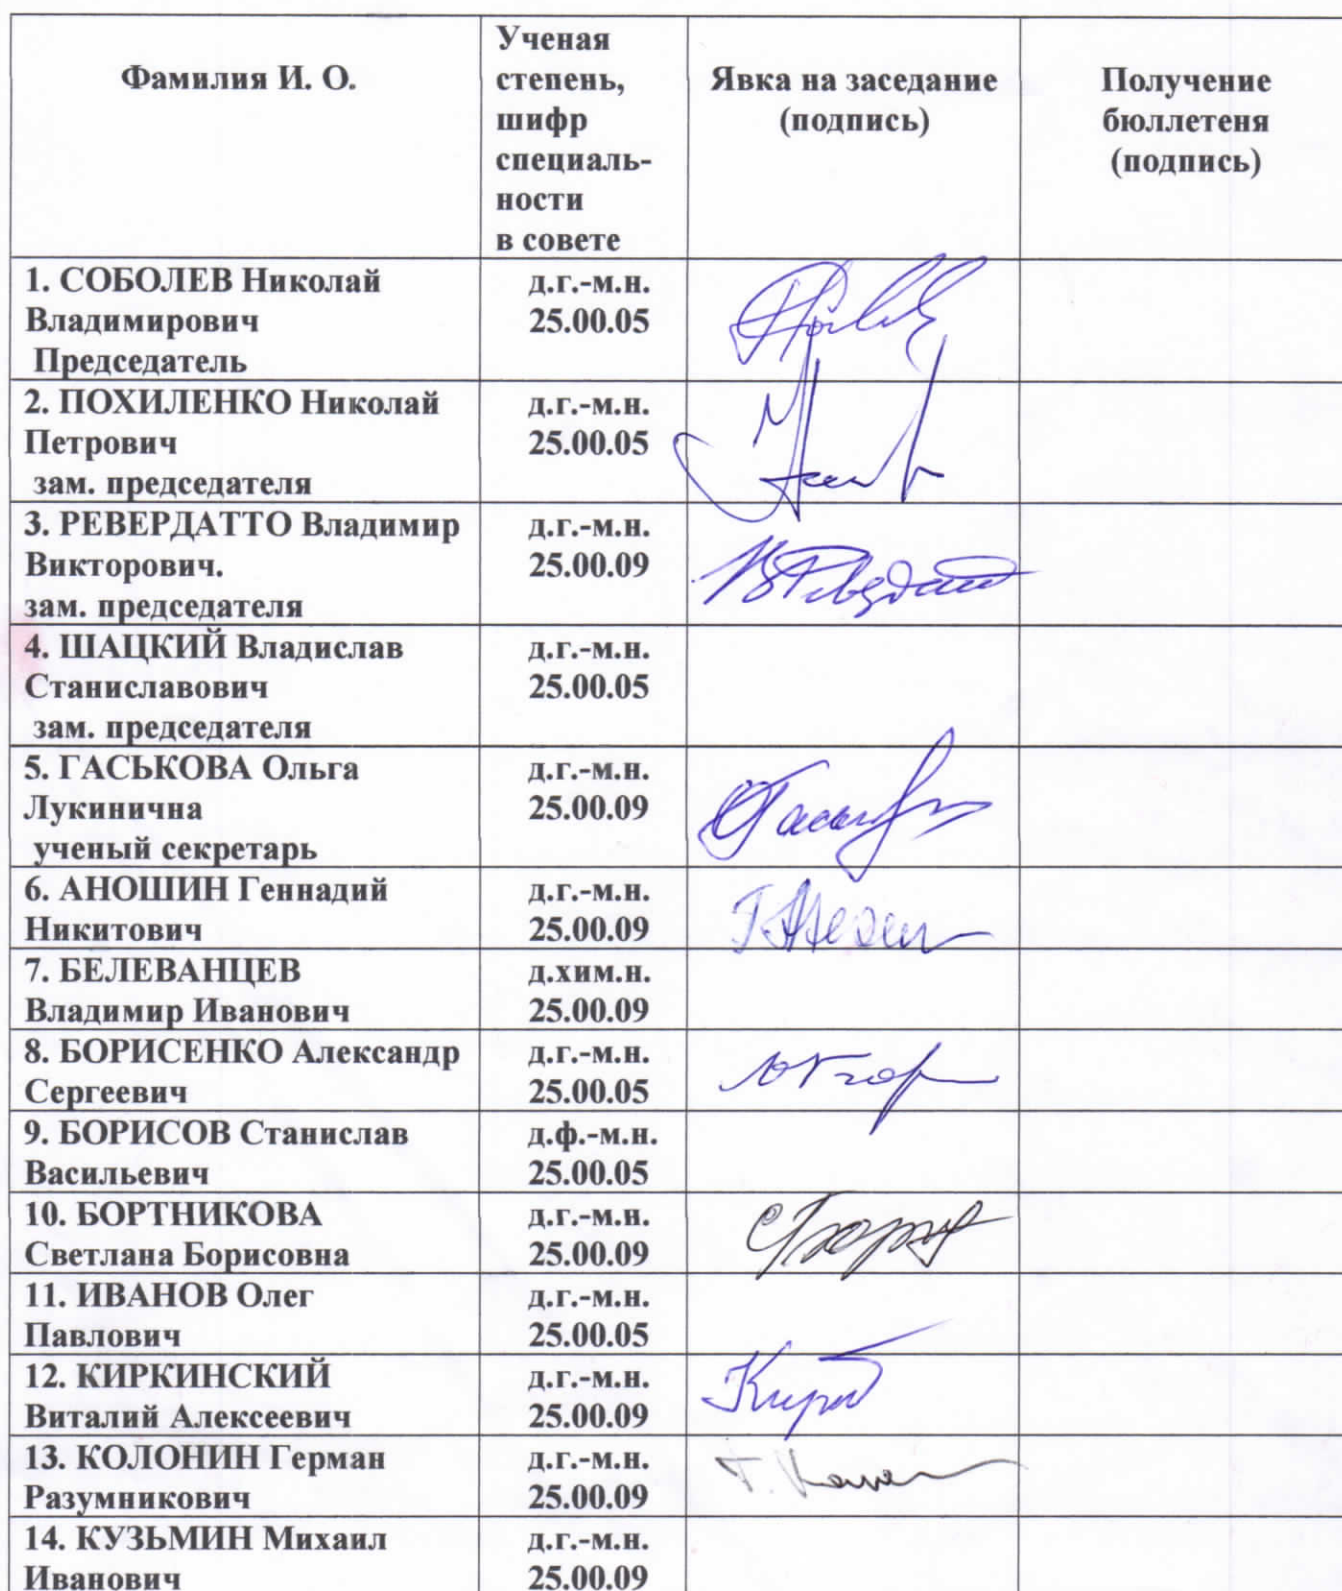 Фамилия И. О.
Ученая
степень,
шифр
специаль-
ности
в совете
Явка на заседание
(подпись)
Получение
бюллетеня
(подпись)
1. СОБОЛЕВ Николай
Владимирович
Председатель
д.г.-м.н.
25.00.05
2. ПОХИЛЕНКО Николай
Петрович
зам. председателя
д.г.-м.н.
25.00.05
3. РЕВЕРДАТТО Владимир
Викторович.
зам. председателя
д.г.-м.н.
25.00.09
4. ШАЦКИЙ Владислав
Станиславович
зам. председателя
д.г.-м.н.
25.00.05
5. ГАСЬКОВА Ольга
Лукинична
ученый секретарь
д.г.-м.н.
25.00.09
6. АНОШИН Геннадий
Никитович
д.г.-м.н.
25.00.09
7. БЕЛЕВАНЦЕВ
Владимир Иванович
д.хим.н.
25.00.09
8. БОРИСЕНКО Александр
Сергеевич
д.г.-м.н.
25.00.05
9. БОРИСОВ Станислав
Васильевич
д.ф.-м.н.
25.00.05
10. БОРТНИКОВА
Светлана Борисовна
д.г.-м.н.
25.00.09
11. ИВАНОВ Олег
Павлович
д.г.-м.н.
25.00.05
12. КИРКИНСКИЙ
Виталий Алексеевич
д.г.-м.н.
25.00.09
13. КОЛОНИН Герман
Разумникович
д.г.-м.н.
25.00.09
14. КУЗЬМИН Михаил
Иванович
д.г.-м.н.
25.00.09